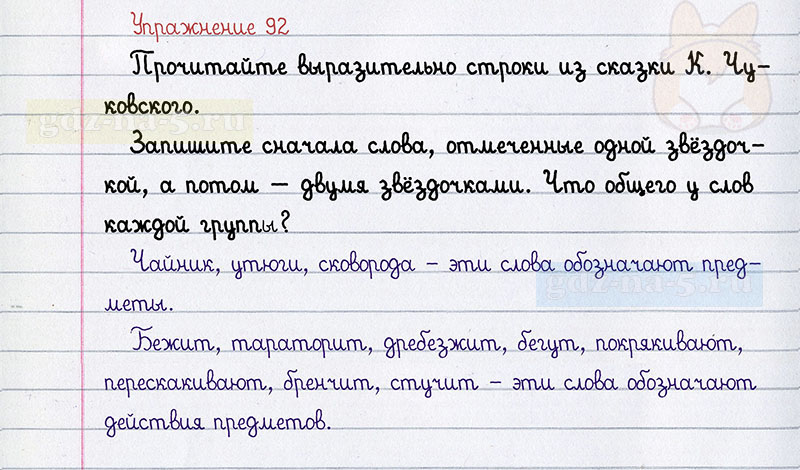 Упражнение 92
Прочитайте выразительно строки из сказки К. Чу-
ковского.
gdz-na-5.ru
Запишите сначала слова, отмеченные одной звёздоч-
кой, а потом — двумя звёздочками. Что общего у слов
каждой группы?
Чайник, утюги, сковорода – эти слова обозначают пред-
меты.
gdz-na-5.ru
Бежит, тараторит, дребезжит, бегут, покрякивают,
перескакивают, бренчит, стучит – эти слова обозначают
действия предметов.